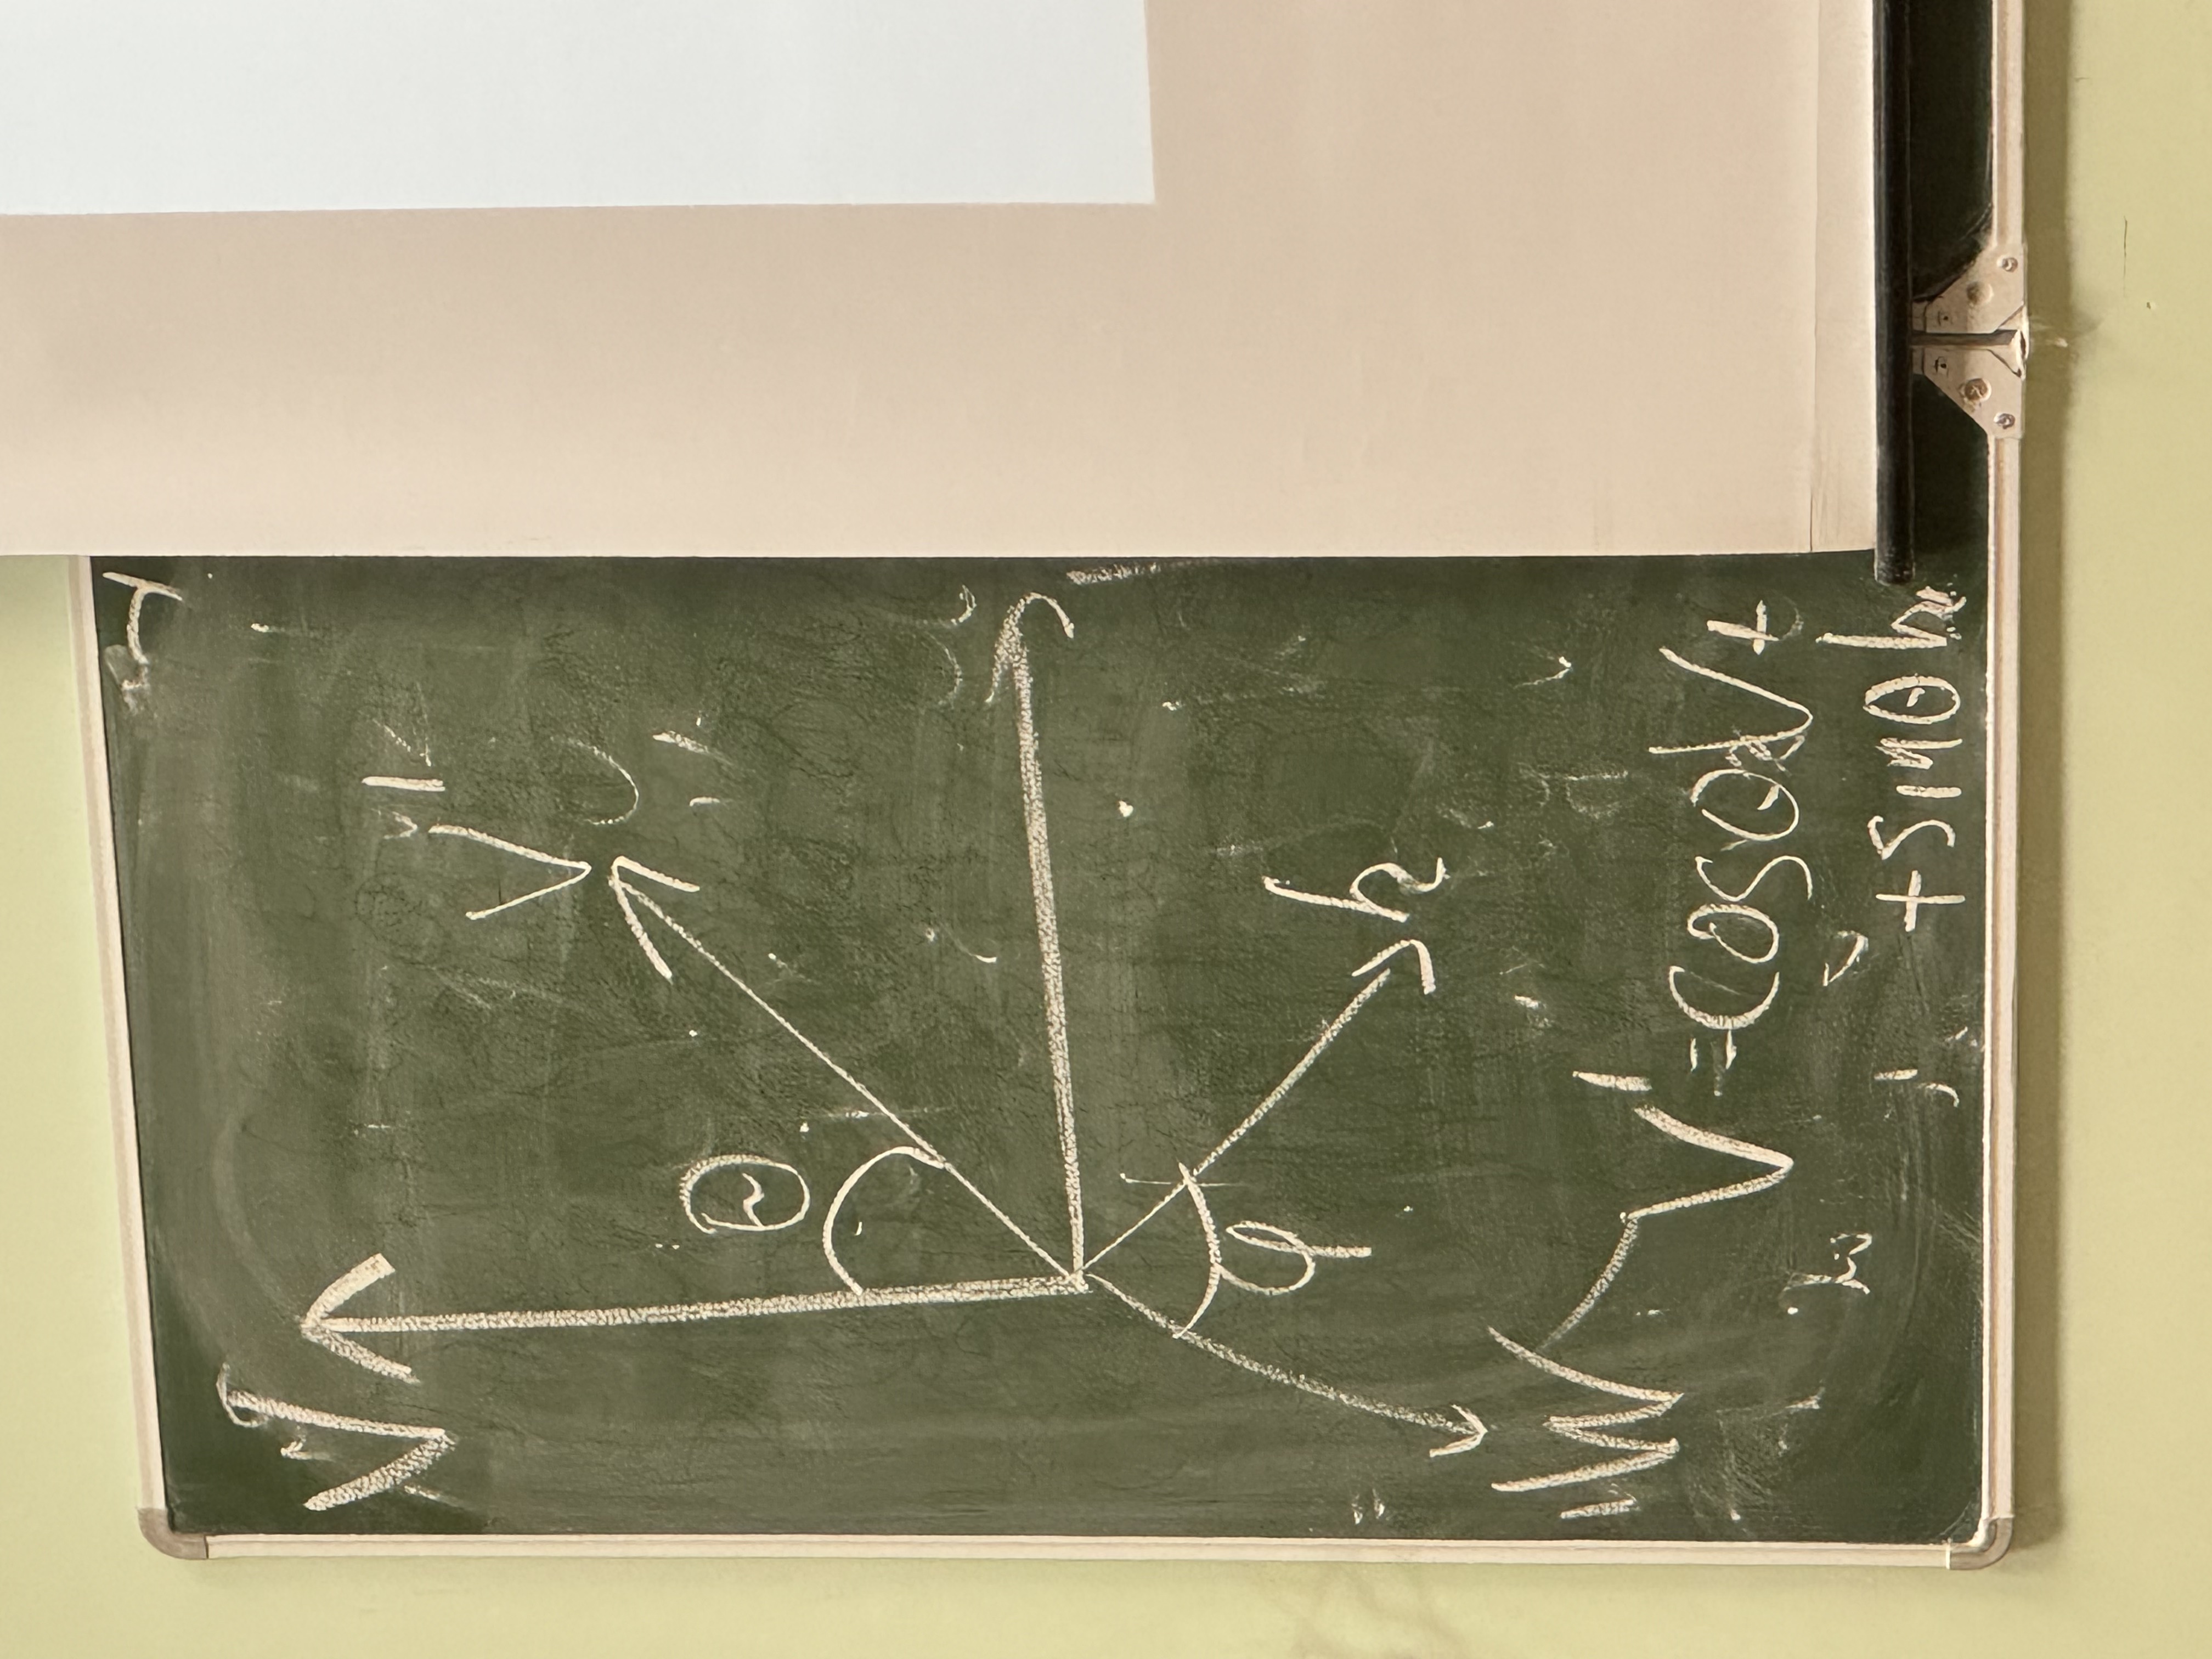 V
V'
θ
u
φ
h
W
V' = cosθ V +
+ sinθ h